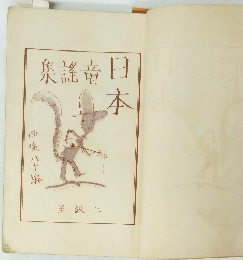 日本
童謡集
西條八十編